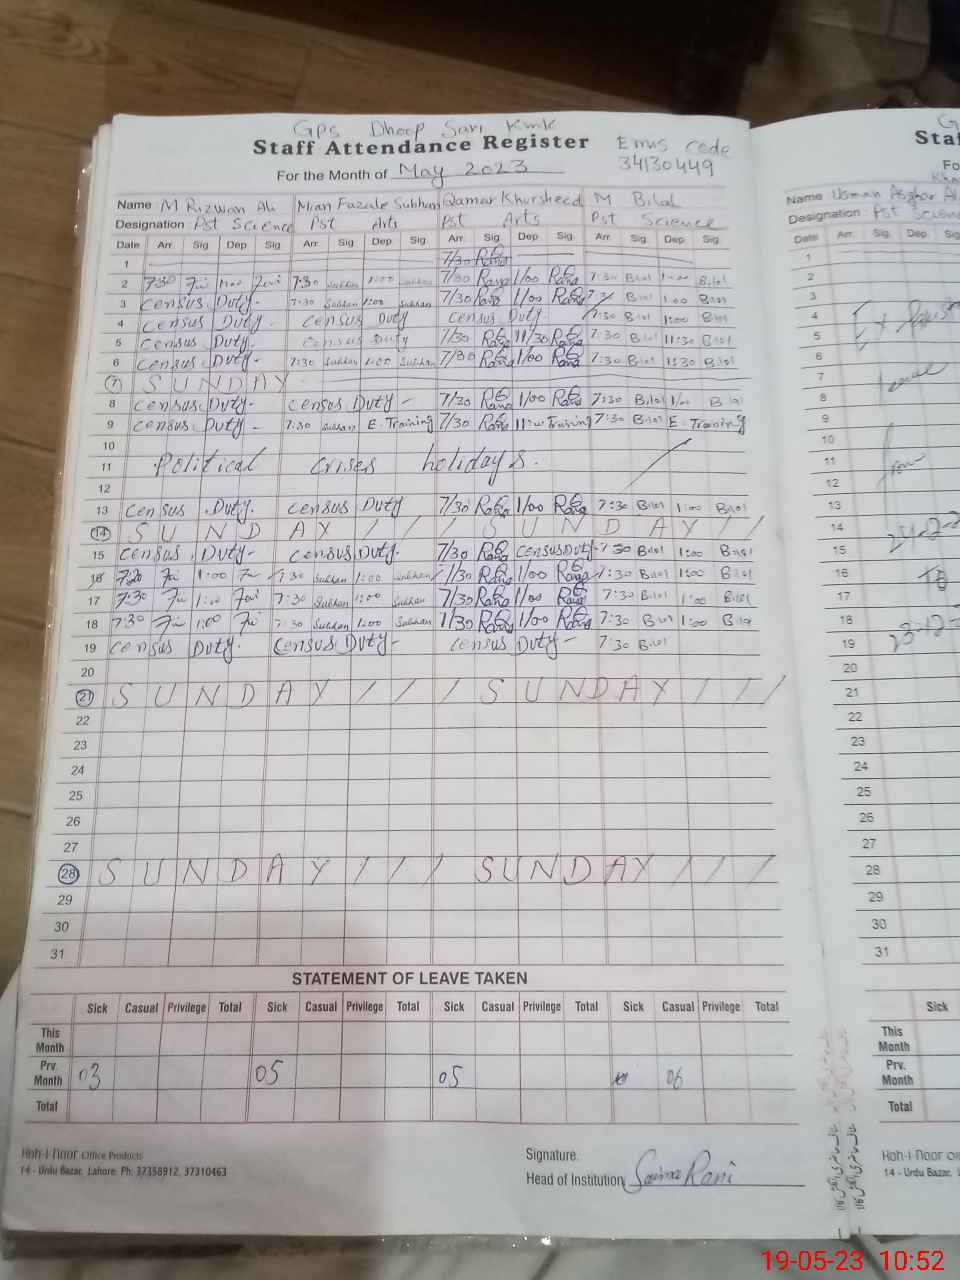 GPS Dhoop Sari Kmk
Staff Attendance Register Emis code
For the Month of May 2023 34130449
Name M Rizwan Ali Mian Fazale Subhan Qamar Khursheed M Bilal
Designation Pst Science Pst Arts Pst Arts Pst Science
Date Arr. Sig Dep Sig Arr. Sig Dep Sig Arr. Sig Dep Sig. Arr. Sig Dep Sig
1 7/30 Rana
2 7:30 1:00 7:30 Subhan 1:00 Subhan 7/30 Rana 1/00 Rana 7:30 Bilal 1:00 Bilal
3 Census Duty. 7:30 Subhan 1:00 Subhan 7/30 Rana 1/00 Rana Bilal 1:00 Bilal
4 Census Duty. Census Duty Census Duty. 7:30 Bilal 1:00 Bilal
5 Census Duty. Census Duty 7/30 Rana 11/30 Rana 7:30 Bilal 11:30 Bilal
6 Census Duty- 7:30 Subhan 1:00 Subhan 7/30 Rana 1/00 Rana 7:30 Bilal Bilal
7 SUNDAY
8 Census Duty- Census Duty- 7/30 Rana 1/00 Rana 7:30 Bilal 1/00 Bilal
9 Census Duty- 7:30 Subhan E. Training 7/30 Rana Training 7:30 Bilal E. Training
10
11 Political crises holidays.
12
13 Census Duty. Census Duty 7/30 Rana 1/00 Rana 7:30 Bilal 1:00 Bilal
14 SUNDAY/ / / SUNDAY/ /
15 Census Duty- Census Duty. 7/30 Rana Census Duty- 7:30 Bilal 1:00 Bilal
16 7:30 1:00 7:30 Subhan 1:00 Subhan 7/30 Rana 1/00 Rana 7:30 Bilal 1:00 Bilal
17 7:30 1:00 7:30 Subhan 1:00 Subhan 7/30 Rana 1/00 Rana 7:30 Bilal 1:00 Bilal
18 7:30 1:00 7:30 Subhan 1:00 Subhan 7/30 Rana 1/00 Rana 7:30 Bilal 1:00 Bilal
19 Census Duty. Census Duty- Census Duty- 7:30 Bilal
20
21 SUNDAY/ / / SUNDAY/ / /
22
23
24
25
26
27
28 SUNDAY/ / / SUNDAY/ / /
29
30
31
STATEMENT OF LEAVE TAKEN
Sick Casual Privilege Total Sick Casual Privilege Total Sick Casual Privilege Total Sick Casual Privilege Total
This Month
Prv. Month 03 05 05 06
Total
Koh-i-Noor Office Products
14 - Urdu Bazar, Lahore. Ph: 37358912, 37310463
Signature.
Head of Institution Saima Rani
G
Sta
Fo
Name Usman Asghar
Designation Pst Scien
Date Arr. Sig Dep
1
2
3
4
5
6
7
8
9
10
11
12
13
14
15
16
17 To
18
19
20
21
22
23
24
25
26
27
28
29
30
31
Sick
This Month
Prv. Month
Total
Koh-i-Noor
14 - Urdu Bazar,
19-05-23 10:52